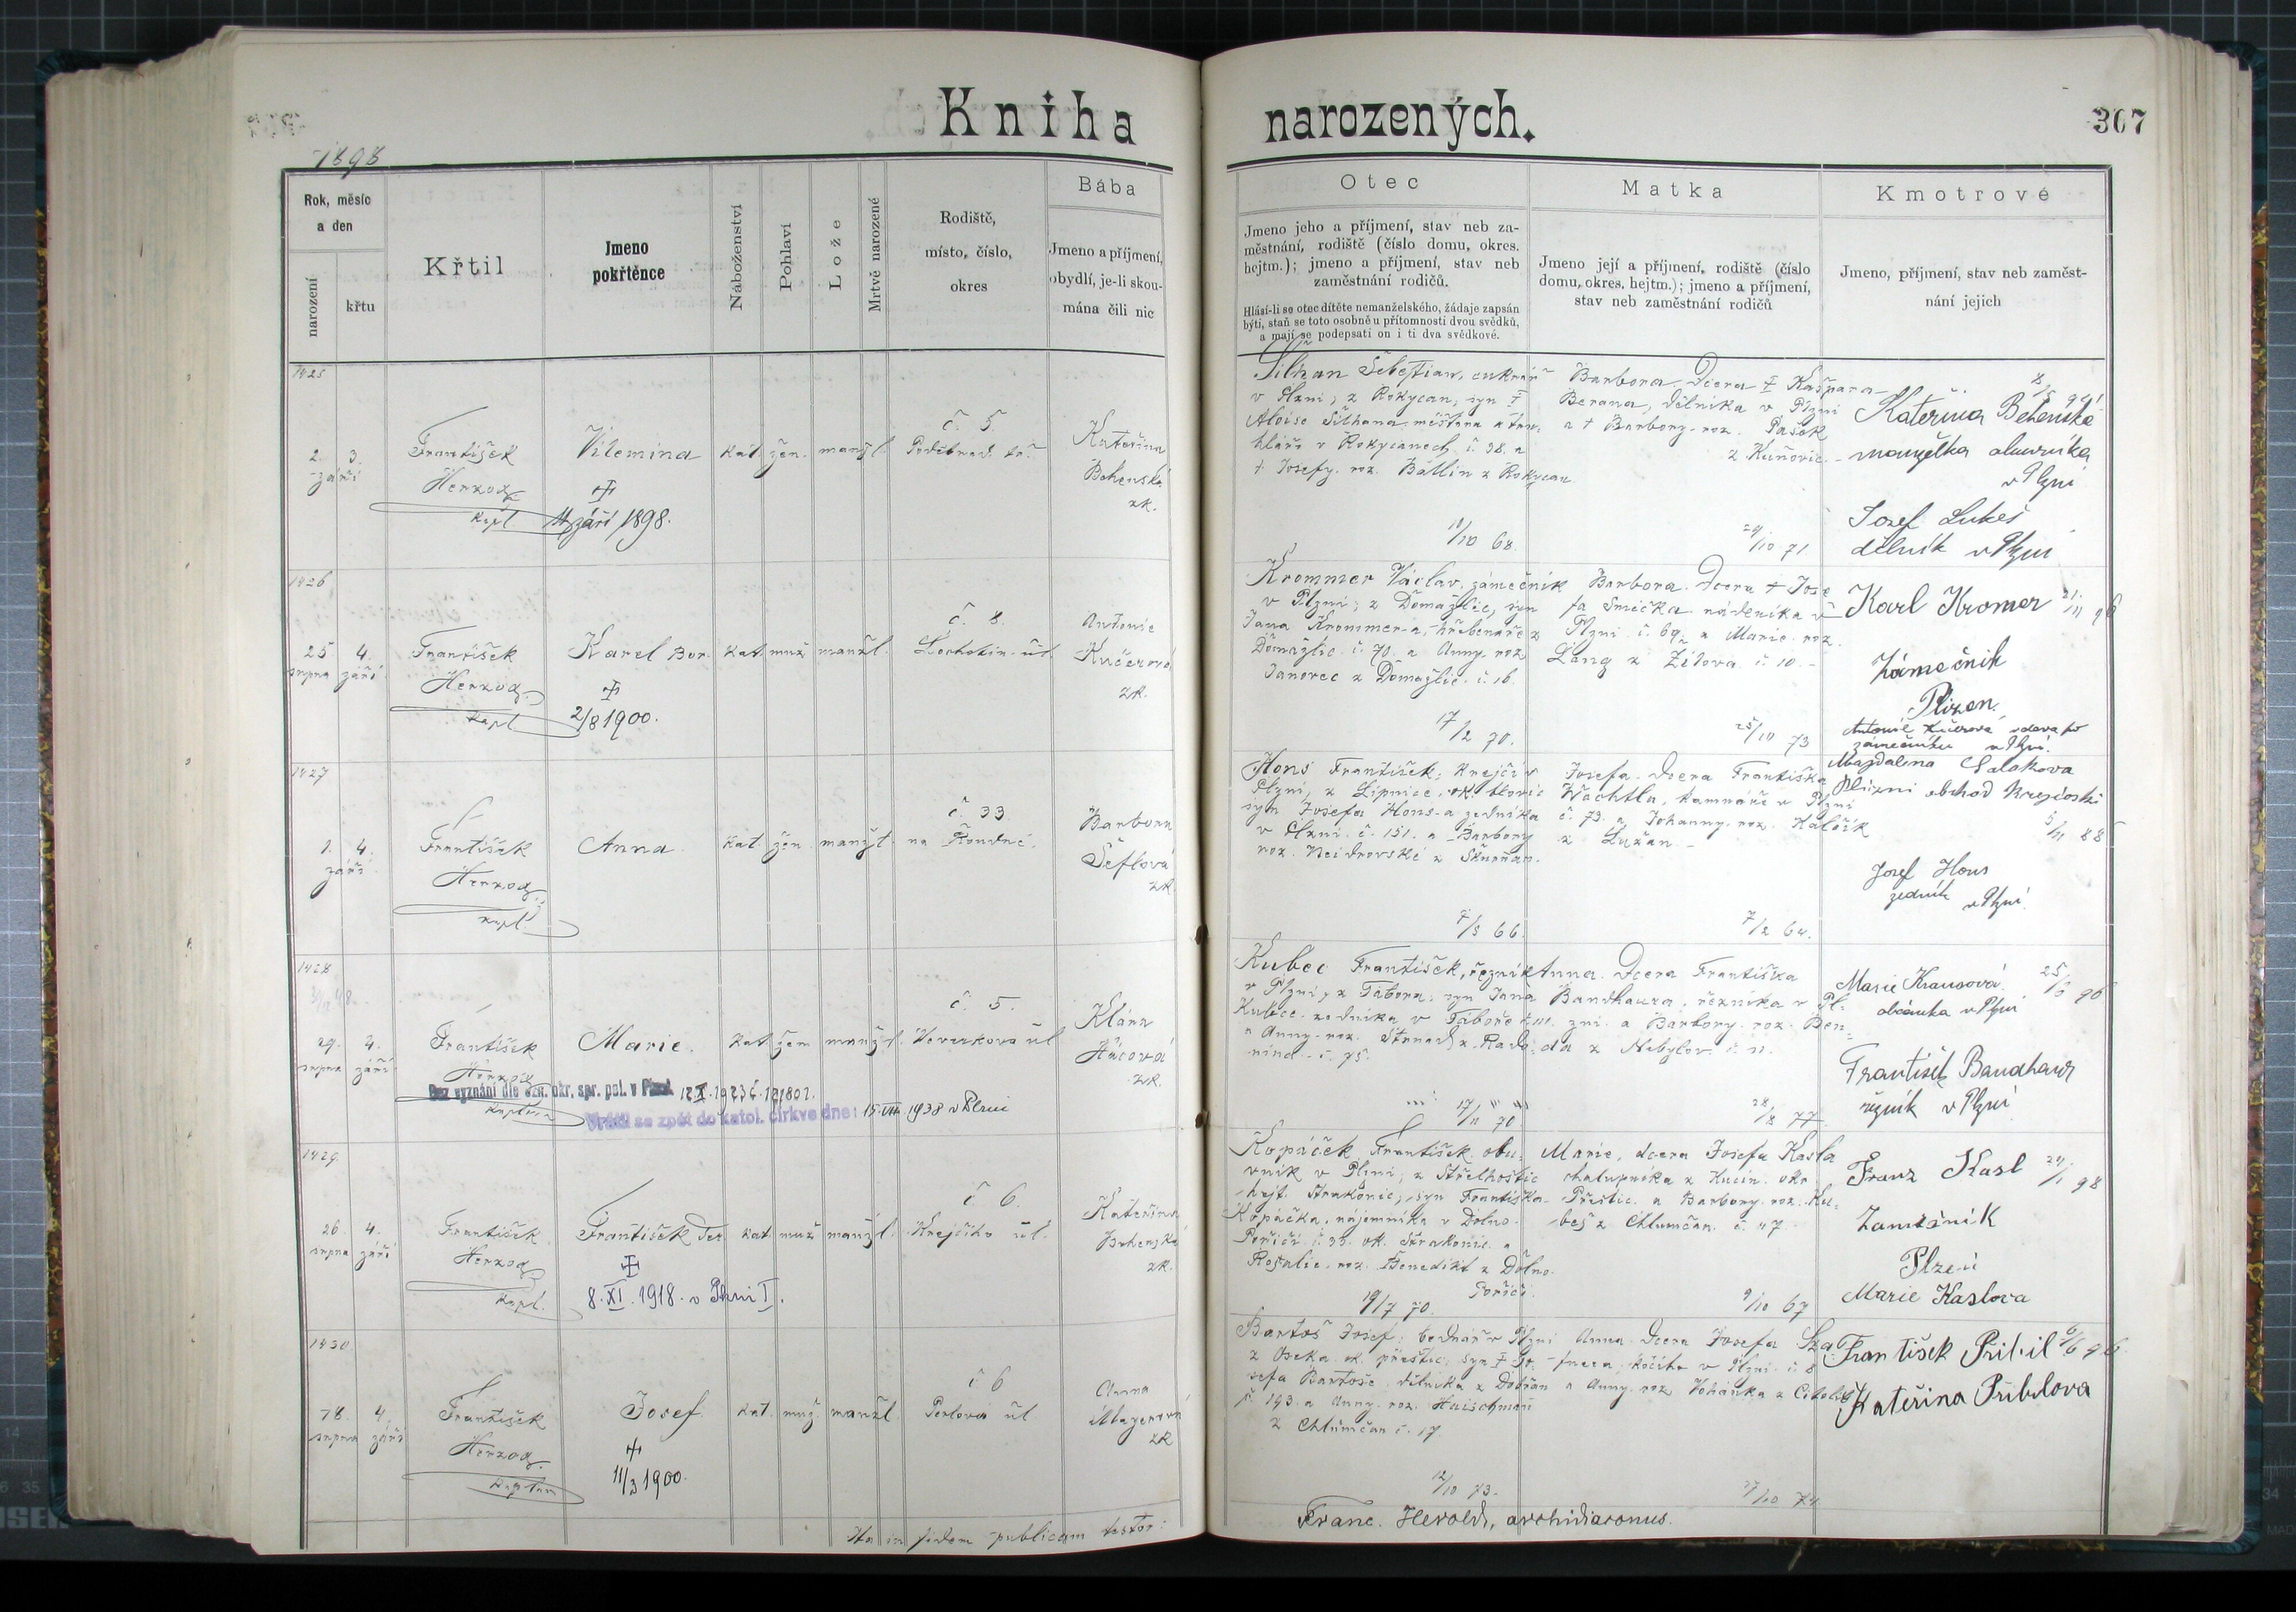 Kniha narozených.
307
1898
Rok, měsíc
a den
narození
křtu
Křtil
Jmeno
pokřtěnce
Náboženství
Pohlaví
Lože
Mrtvě narozené
Rodiště,
místo, číslo,
okres
Bába
Jmeno a příjmení,
obydlí, je-li skou-
mána čili nic
Otec
Jmeno jeho a příjmení, stav neb za-
městnání, rodiště (číslo domu, okres.
hejtm.); jmeno a příjmení, stav neb
zaměstnání rodičů.
Hlásí-li se otec dítěte nemanželského, žádaje zapsán
býti, staň se toto osobně u přítomnosti dvou svědků,
a mají se podepsati on i ti dva svědkové.
Matka
Jmeno její a příjmení, rodiště (číslo
domu, okres. hejtm.); jmeno a příjmení,
stav neb zaměstnání rodičů
Kmotrové
Jmeno, příjmení, stav neb zaměst-
nání jejich
1425
2. 3.
září
František
Herzog
kapl
Vilemina
11 září 1898.
kat. žen. manžl.
č. 5.
Poděbrad. tř.
Kateřina
Behenská
zk.
Silhan Šebestian, cukrář
v Plzni, z Rokycan, syn †
Aloise Silhana, měštana a tru-
hláře v Rokycanech č. 38. a
† Josefy roz. Bätlin z Rokycan
10/10 68.
Barbora. Dcera † Kašpara
Berana, dělníka v Plzni
a † Barbory roz. Pašek
z Kuňovic. -
24/10 71.
Kateřina Behenská
manželka
v Plzni
Josef Lukeš
dělník v Plzni
1426
25 4.
srpna září
František
Herzog
kapl
Karel Bor.
2/8 1900.
kat. muž. manžl.
č. 8.
Lochotín. úl
Antonie
Kučerová
zk.
Krommer Václav, zámečník
v Plzni, z Domažlic, syn
Jana Krommer-a, hřebenáře z
Domažlic č. 70. a Anny roz
Janovec z Domažlic č. 16.
17/2 70.
Barbora. Dcera † Jose-
fa Smička nádeníka v
Plzni č. 69. a Marie roz.
Lang z Žilova č. 10. -
25/10 73
Karl Kromer
Zámečnik
Plizen
Antonie Kučerová vdova po
zámečníku v Plzni.
1427
1. 4.
září
František
Herzog
kapl
Anna
kat. žen. manžl.
č 33.
na Roudné.
Barbora
Šeflová
zk.
Hons František, krejčí v
Plzni, z Lipnice, ok. blovic
syn Josefa Hons-a zedníka
v Plzni č. 151. a Barbory
roz. Neidrovské z Skurňan.
7/3 66.
Josefa. Dcera Františka
Wachtla, kamnáře v Plzni
č. 73. a Johanny roz. Kalčík
z Lužan. -
7/2 64.
Magdalena
Plizni obchod krejčoski
5/11 88
Josef Hons
zedník
v Plzni.
1428
29. 4.
srpna září
František
Herzog
kaplan
Marie.
kat. žen manžl.
č. 5.
Kovarkova úl
Klára
Hácová
zk.
Bez vyznání dle ozn. okr. spr. pol. v Plzni
Vrátil se zpět do katol. církve dne: 15. VIII. 1938 v Plzni
Kubec František, řezník
v Plzni, z Tábora, syn Jana
Kubce zedníka v Táboře
a Anny roz. Štrnad z Rado-
nína č. 75.
17/11 70
Anna. Dcera Františka
Bandhaura, řezníka v Pl-
zni a Barbory roz. Ben-
da z Nebylov č. 11.
28/8 77
Marie Krausová
25/6 96
v Plzni
František Bandhaur
řezník v Plzni
1429.
26. 4.
srpna září
František
Herzog
kapl.
František Ser
8. XI. 1918. v Plzni I.
kat. muž manžl.
č 6.
Krejčího úl.
Kateřina
Behenská
zk.
Kopáček František, obu-
vník v Plzni, z Střelhoštic
hejt. Strakonic, syn Františka
Kopáčka, nájemníka v Dolno-
Poříčí č. 33. ok. Strakonic. a
Rosalie roz. Benedikt z Dolno-
Poříčí.
19/7 70.
Marie, dcera Josefa Kasla
chalupníka z Kucin. okr.
Přeštic. a Barbory roz. Ku-
beš z Chlumčan. č. 47.
9/10 67
Franz Kasl 24/1 98
Zamečnik
Plzeň
Marie Kaslova
1430.
78. 4.
srpna září
František
Herzog
Kaplan
Josef
11/3 1900.
kat. muž. manžl
č 6
Perlova úl
Anna
Mayerová
zk
Bartoš Josef, bednář v Plzni
z Oseka ok. přeštic. syn † Jo-
sefa Bartoše, dělníka z Dobřan
č. 193. a Anny roz. Haischman
z Chlumčan č. 17.
12/10 73.
Anna. Dcera Josefa
kočího v Plzni. č. 8
a Anny roz
27/10 74
František Přibil 6/6 96
Kateřina Přibilova
Ita in fidem publicam testor:
Franc. Herold, archidiaconus.